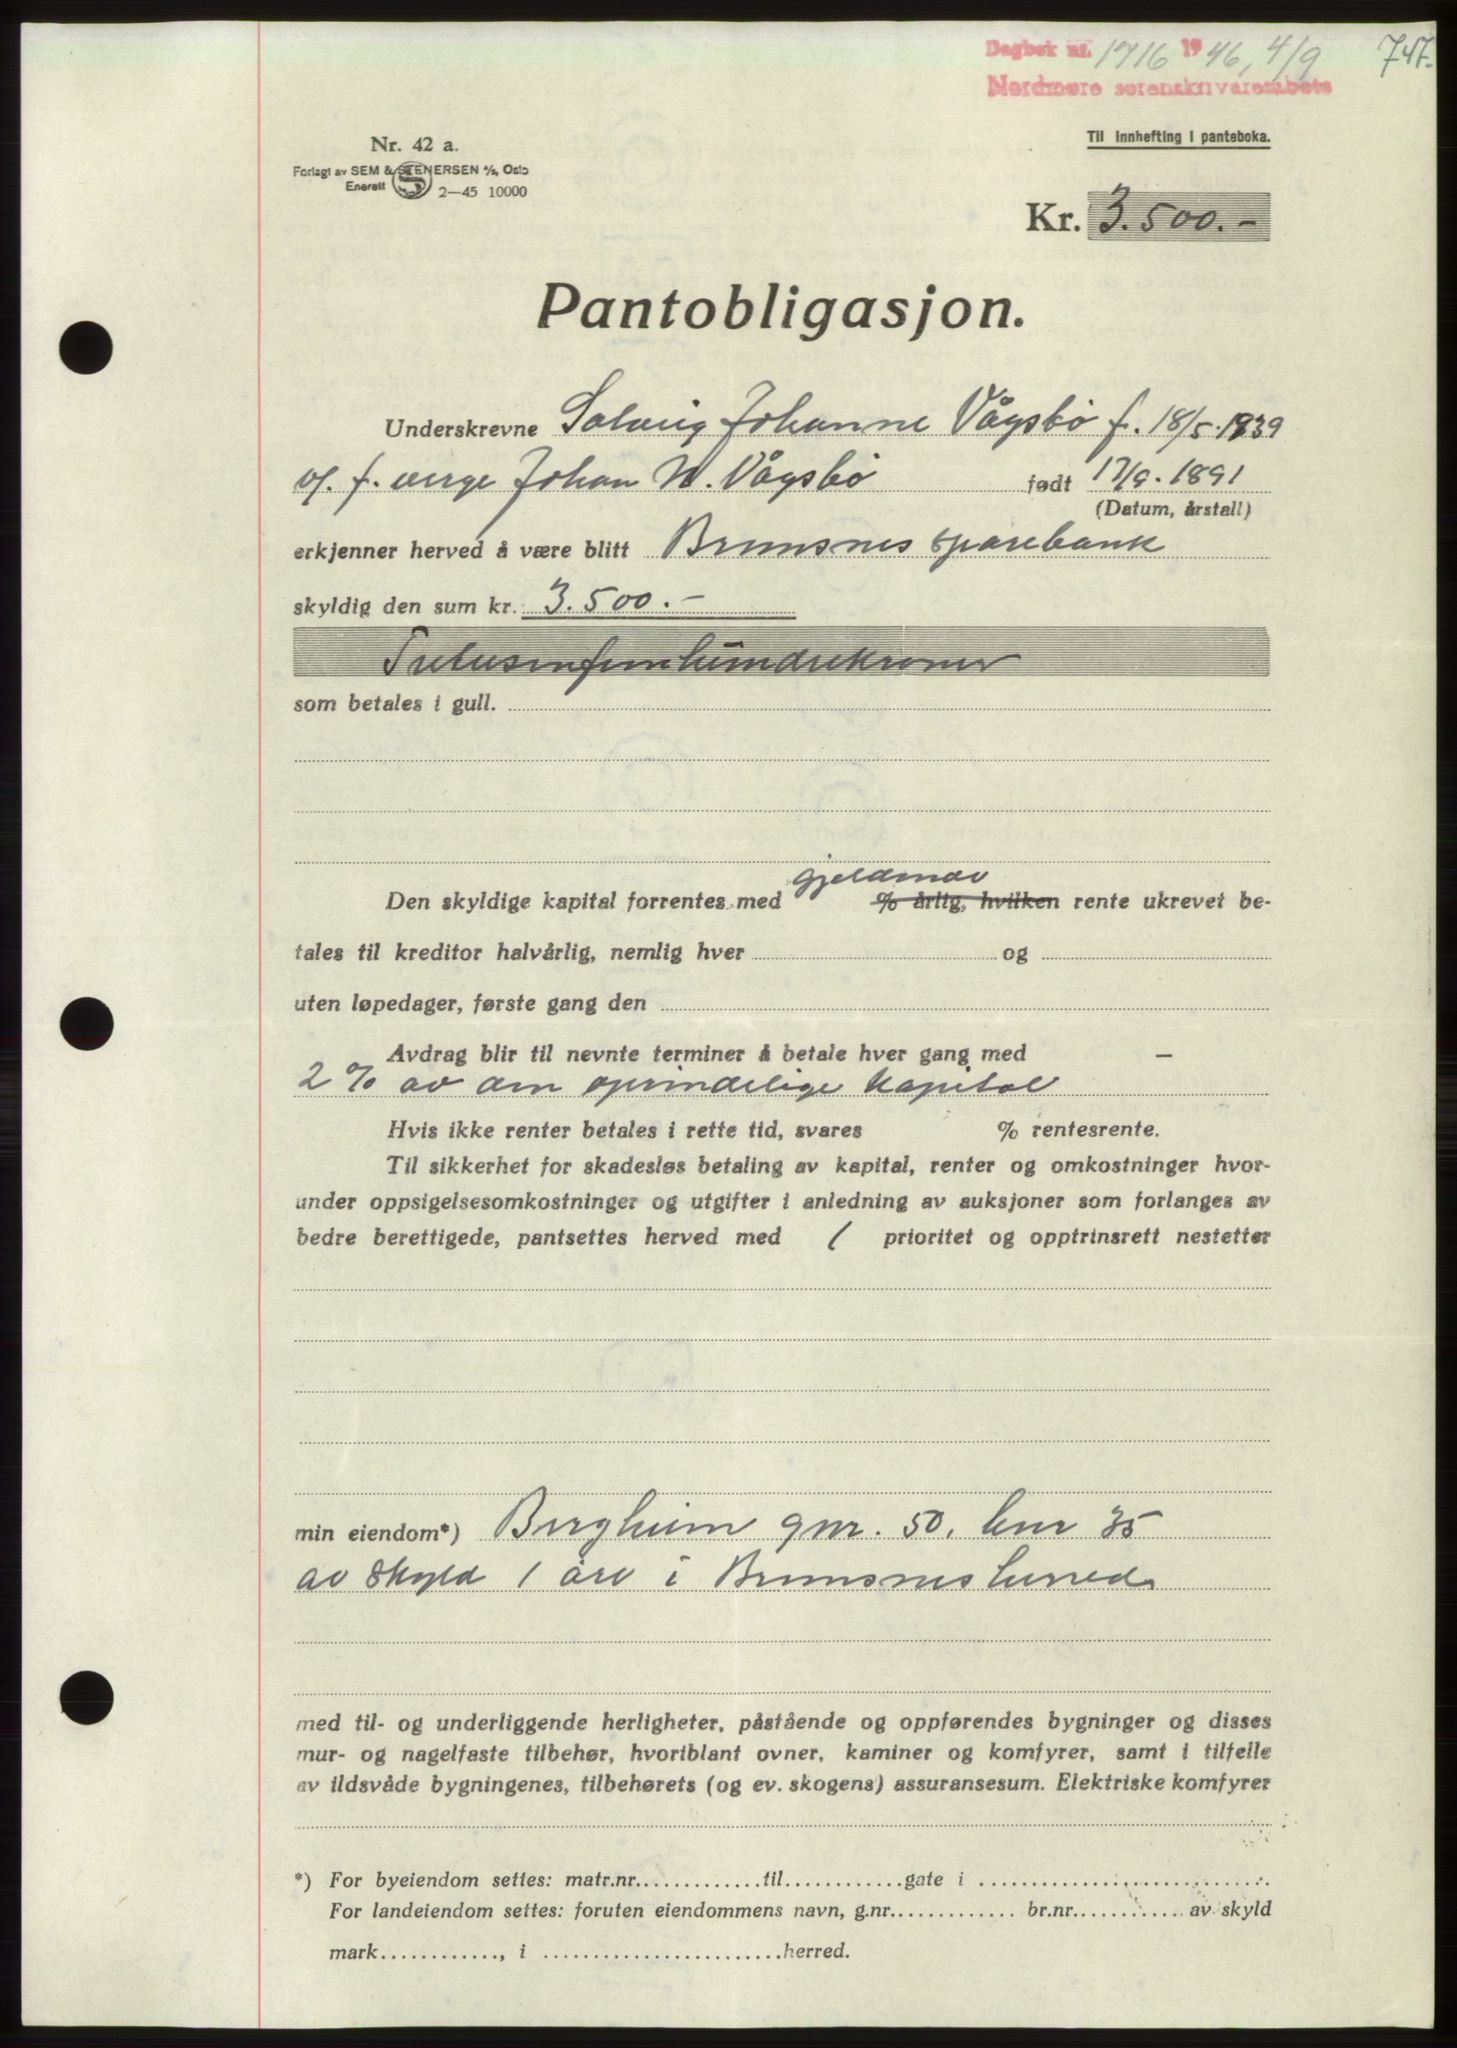 Dagbok nr. 1716 1946, 4/9 747.
Nordmøre sorenskriverembete
Til innhefting i panteboka.
Nr. 42 a.
Forlagt av SEM & STENERSEN A/S, Oslo
Enerett 2—45 10000
Kr. 3.500.-
Pantobligasjon.
Underskrevne Solveig Johanne Vågsbø f. 18/5.1939
v/. f. verge Johan N. Vågsbø født 17/9.1891
(Datum, årstall)
erkjenner herved å være blitt Bremsnes sparebank
skyldig den sum kr. 3.500.-
Tretusenfemhundrekroner
som betales i gull.
gjeldende
Den skyldige kapital forrentes med % årlig, hvilken rente ukrevet be-
tales til kreditor halvårlig, nemlig hver og
uten løpedager, første gang den
Avdrag blir til nevnte terminer å betale hver gang med —
2 % av den oprindelige kapital
Hvis ikke renter betales i rette tid, svares % rentesrente.
Til sikkerhet for skadesløs betaling av kapital, renter og omkostninger hvor-
under oppsigelsesomkostninger og utgifter i anledning av auksjoner som forlanges av
bedre berettigede, pantsettes herved med 1 prioritet og opptrinsrett nestetter
min eiendom*) Bergheim gnr. 50, bnr 35
av skyld 1 øre i Bremsnes herred
med til- og underliggende herligheter, påstående og oppførendes bygninger og disses
mur- og nagelfaste tilbehør, hvoriblant ovner, kaminer og komfyrer, samt i tilfelle
av ildsvåde bygningenes, tilbehørets (og ev. skogens) assuransesum. Elektriske komfyrer
*) For byeiendom settes: matr.nr. til gate i
For landeiendom settes: foruten eiendommens navn, g.nr. br.nr. av skyld
mark , i herred.